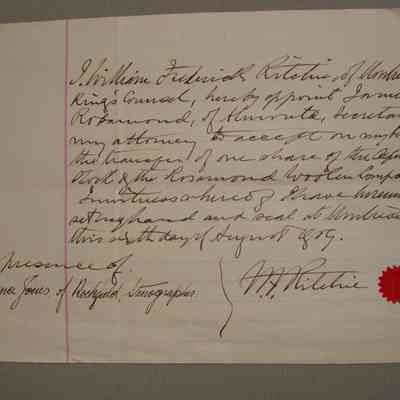 I, William Frederick Ritchie, of Montre
King's Counsel, hereby appoint James
Rosamond, of Almonte, Secreta
my attorney to accept on my b
the transfer of one share of the Cap
Stock of the Rosamond Woolen Compa
In witness whereof I have hereun
set my hand and seal at Montrea
this sixth day of August 1909.
presence of.
Jones, of Rockfield, Stenographer
W.F. Ritchie